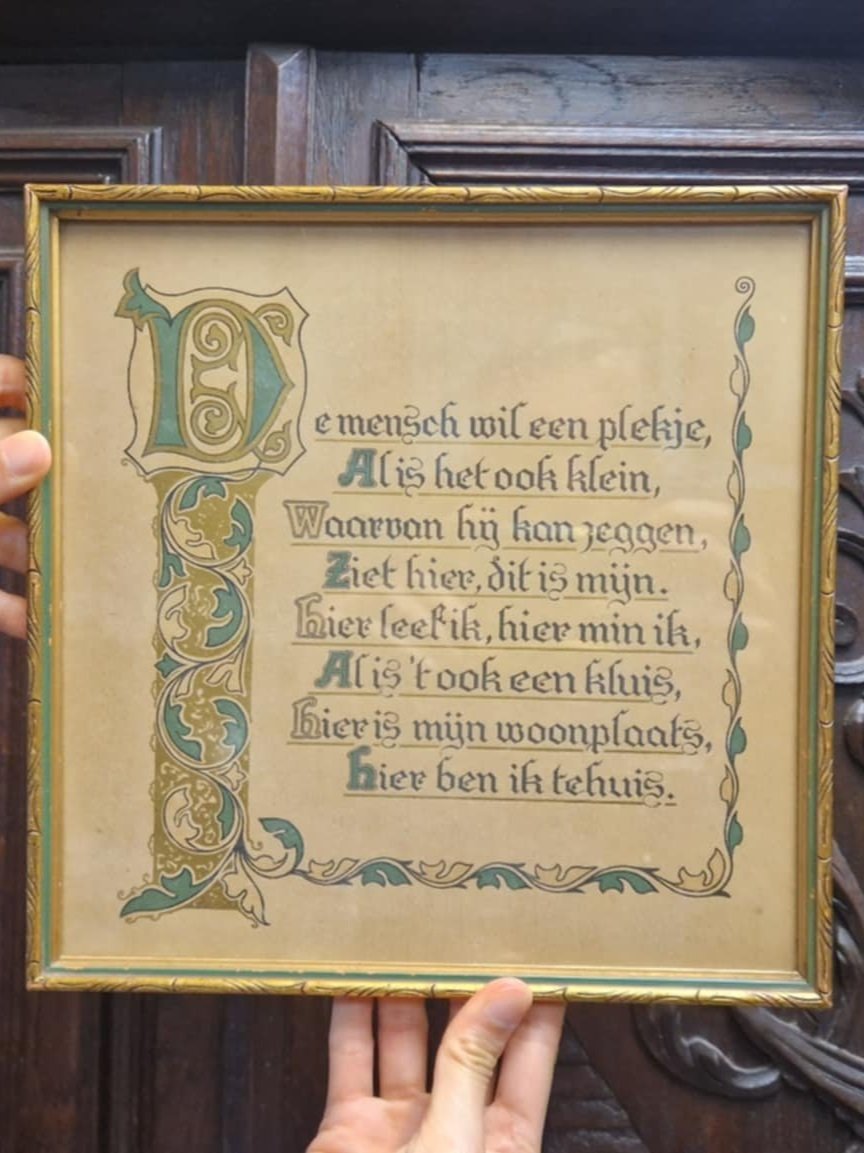 De mensch wil een plekje,
Al is het ook klein,
Waarvan hij kan zeggen,
Ziet hier, dit is mijn.
Hier leef ik, hier min ik,
Al is 't ook een kluis,
Hier is mijn woonplaats,
Hier ben ik tehuis.